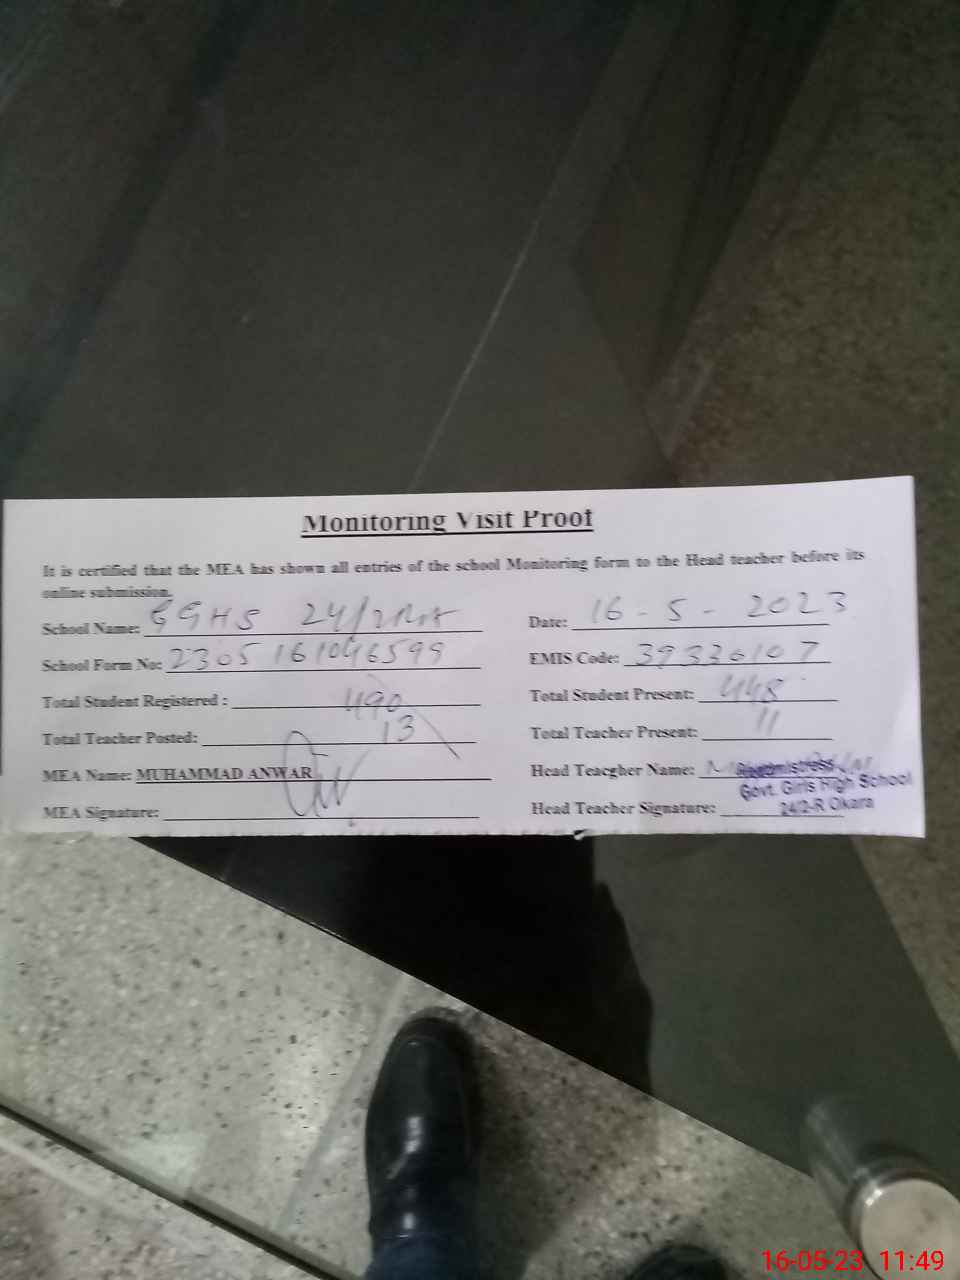 Monitoring Visit Proof
It is certified that the MEA has shown all entries of the school Monitoring form to the Head teacher before its
online submission.
School Name: GGHS 24/2
Date: 16-5-2023
School Form No: 2305161046599
EMIS Code: 39330107
Total Student Registered : 490
Total Student Present: 448
Total Teacher Posted: 13
Total Teacher Present: 11
MEA Name: MUHAMMAD ANWAR
Head Teacgher Name:
Headmistress
Govt. Girls High School
24/2-R Okara
MEA Signature:
Head Teacher Signature:
16-05-23 11:49